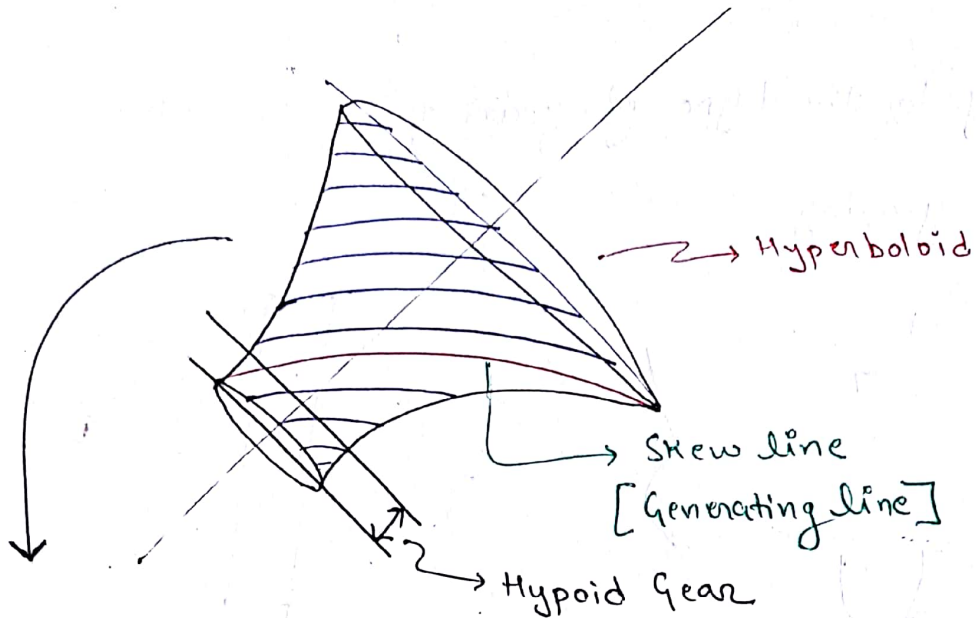 Hyperboloid
Skew line
[Generating line]
Hypoid Gear